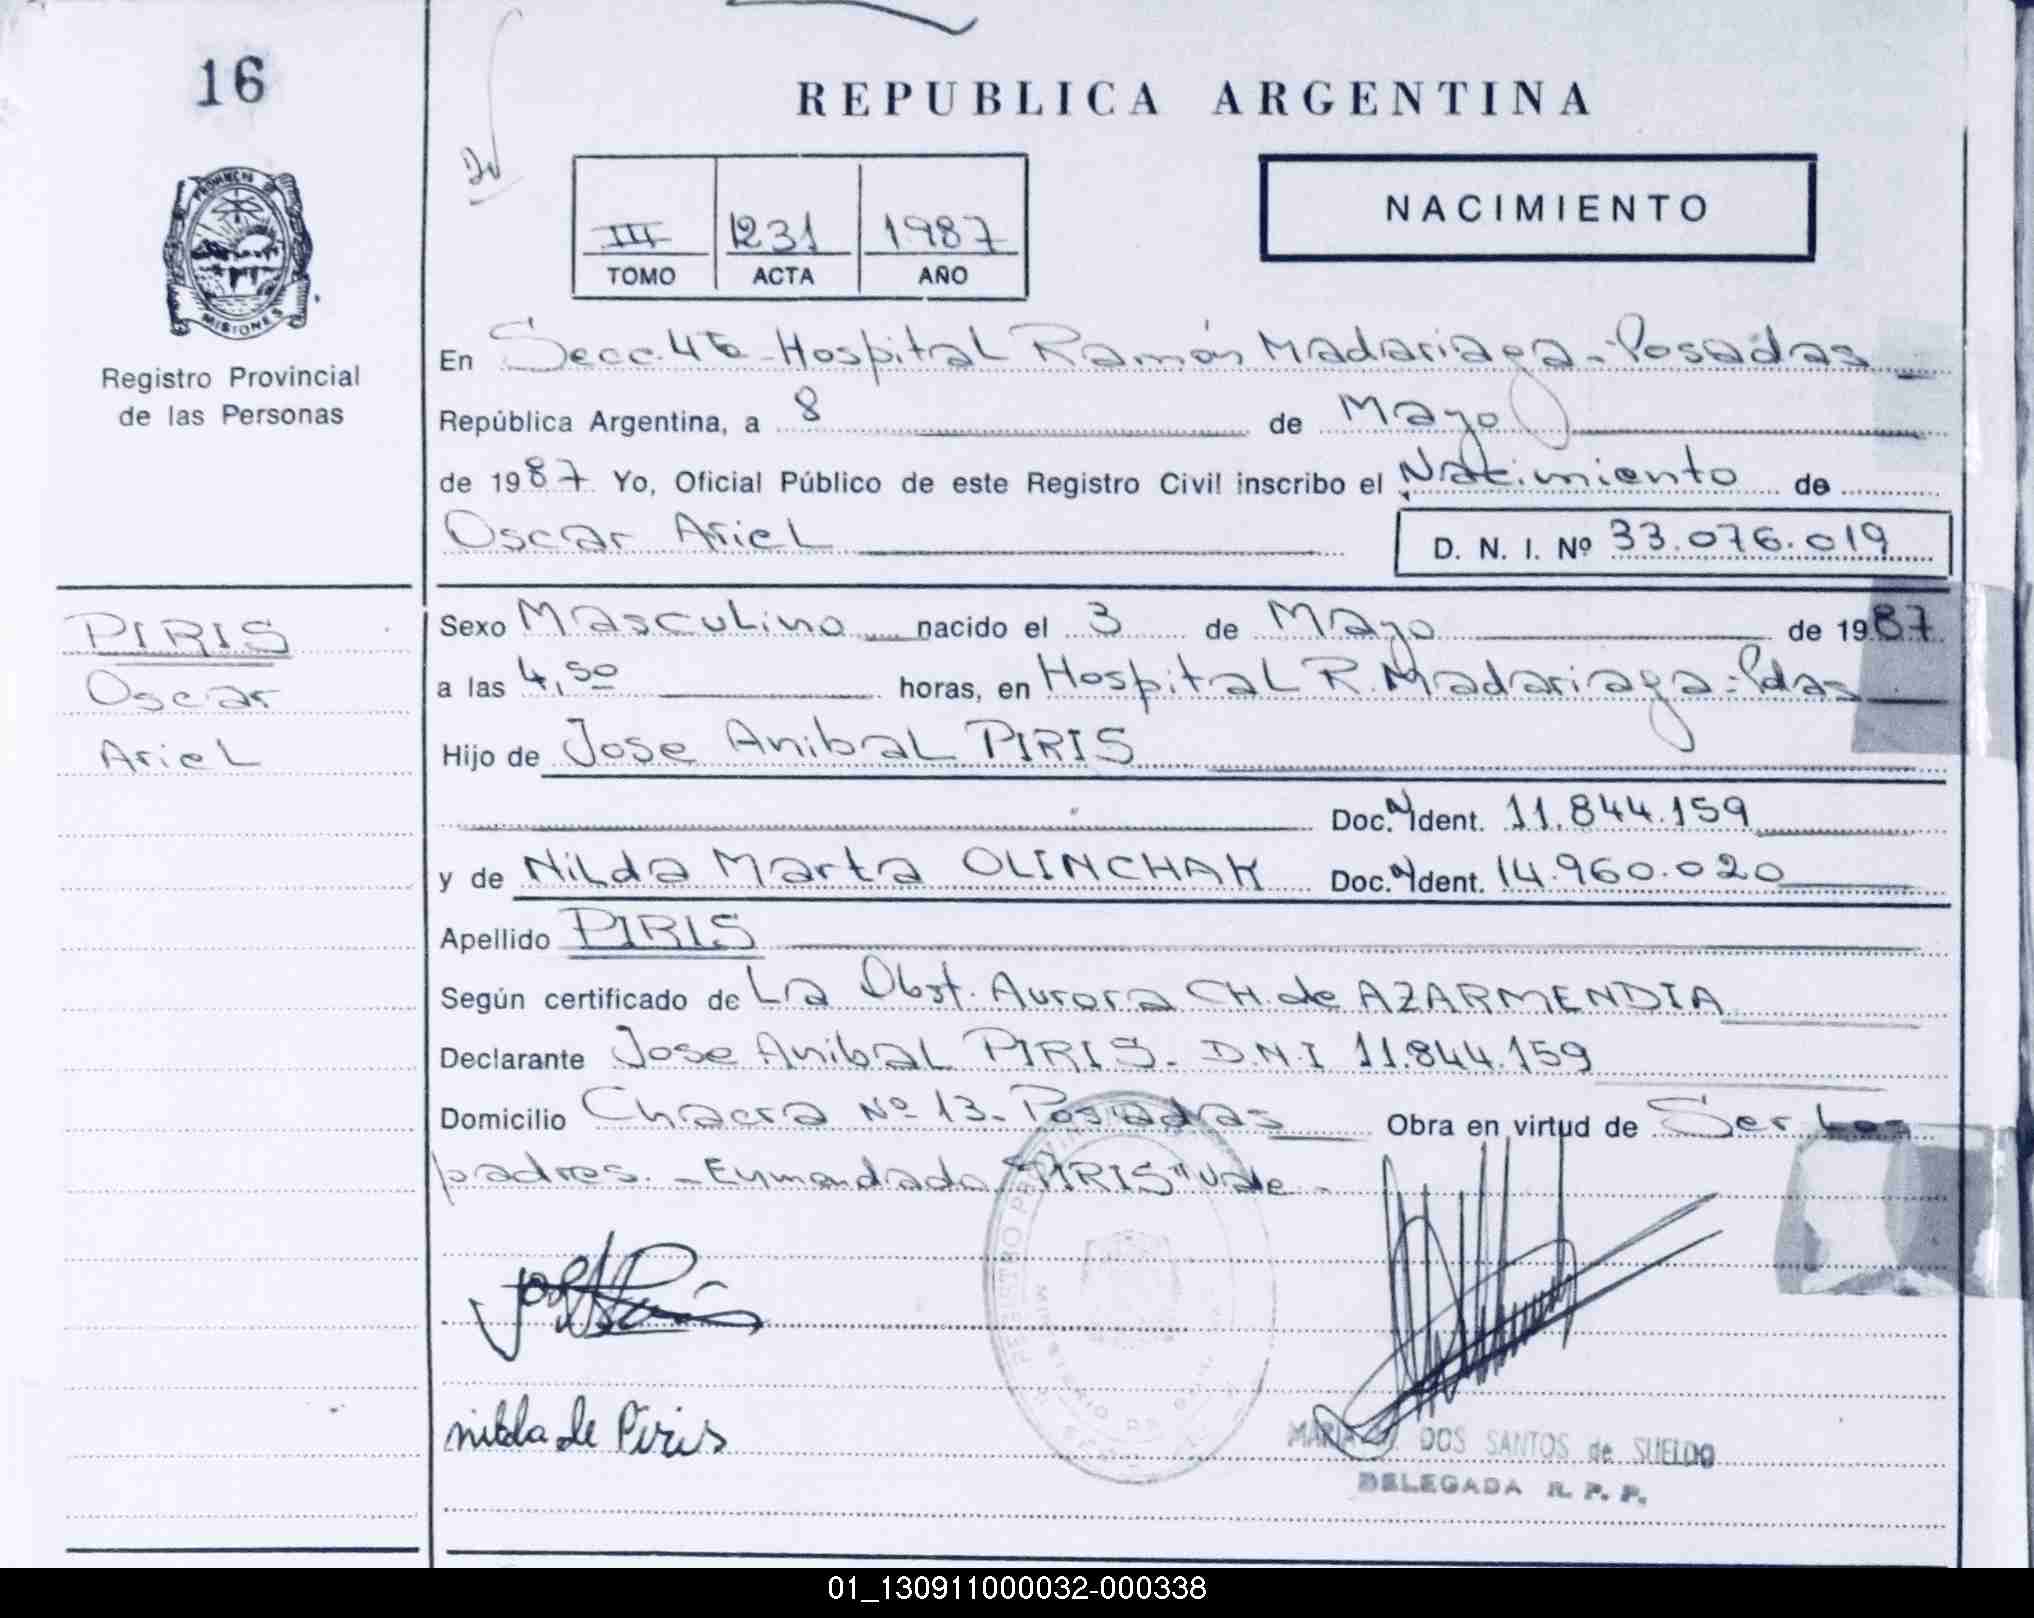 16
REPUBLICA ARGENTINA
PROVINCIA
MISIONES
Registro Provincial
de las Personas
III 1231 1987
TOMO ACTA AÑO
NACIMIENTO
En Secc. 4ta - Hospital Ramón Madariaga - Posadas
República Argentina, a 8 de Mayo
de 1987 Yo, Oficial Público de este Registro Civil inscribo el Nacimiento de
Oscar Ariel
D. N. I. Nº 33.076.019
PIRIS
Oscar
Ariel
Sexo Masculino nacido el 3 de Mayo de 1987
a las 4,50 horas, en Hospital R. Madariaga - Pdas
Hijo de Jose Anibal PIRIS
Doc. N Ident. 11.844.159
y de Nilda Marta OLINCHAK Doc. N Ident. 14.960.020
Apellido PIRIS
Según certificado de La Obst. Aurora CH. de AZARMENDIA
Declarante Jose Anibal PIRIS - D.N.I 11.844.159
Domicilio Chacra Nº 13 - Posadas Obra en virtud de Ser Los
padres. - Enmendado "PIRIS" vale -
nilda de Piris
MARIA DOS SANTOS de SUELDO
DELEGADA R. P. P.
01_130911000032-000338